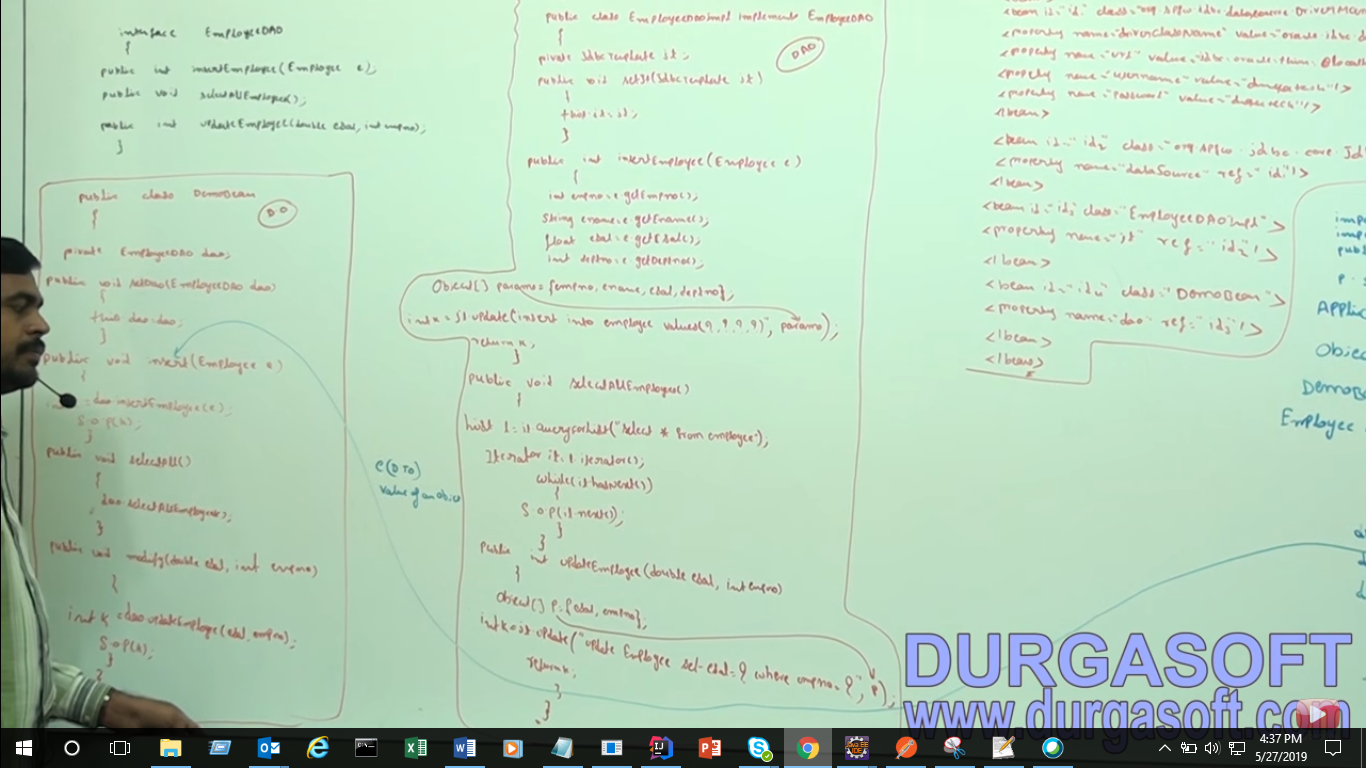 interface EmployeeDAO
{
public int insertEmployee(Employee e);
public void selectAllEmployee();
public int updateEmployee(double esal, int empno);
}
public class DemoBean
{
D.O
private EmployeeDAO dao;
public void setDao(EmployeeDAO dao)
{
this.dao=dao;
}
public void insert(Employee e)
{
int =dao.insertEmployee(e);
S.O.P(k);
}
public void selectAll()
{
dao.selectAllEmployee();
}
public void modify(double esal, int empno)
{
int k =dao.updateEmployee(esal, empno);
S.O.P(k);
}
}
e(DTO)
value of an object
public class EmployeeDAOImpl implements EmployeeDAO
{
DAO
private JdbcTemplate jt;
public void setJt(JdbcTemplate jt)
{
this.jt=jt;
}
public int insertEmployee(Employee e)
{
int empno=e.getEmpno();
String ename=e.getEname();
float esal=e.getEsal();
int deptno=e.getDeptno();
Object[] params={empno, ename, esal, deptno};
int k=jt.update(insert into employee values(?,?,?,?)", params);
return k;
}
public void selectAllEmployee()
{
List l=jt.queryForList("select * from employee");
Iterator it=l.iterator();
while(it.hasNext())
{
S.O.P(it.next());
}
}
public int updateEmployee(double esal, int empno)
{
Object[] p={esal, empno};
int k=jt.update("update Employee set esal=? where empno=?", p);
return k;
}
}
<property name="driverClassName" value="oracle.jdbc.d
<property name="url" value="jdbc:oracle:thin:@localh
<property name="username" value="durgatech"/>
<property name="password" value="durgatech"/>
</bean>
<bean id="id2" class="org.spfw.jdbc.core.Jd
<property name="dataSource" ref="id1"/>
</bean>
<bean id="id3" class="EmployeeDAOImpl">
<property name="jt" ref="id2"/>
</bean>
<bean id="id4" class="DemoBean">
<property name="dao" ref="id3"/>
</bean>
</beans>
impo
impo
publ
P.
Applic
Objec
DemoB
Employee
DURGASOFT
www.durgasoft.com
4:37 PM
5/27/2019